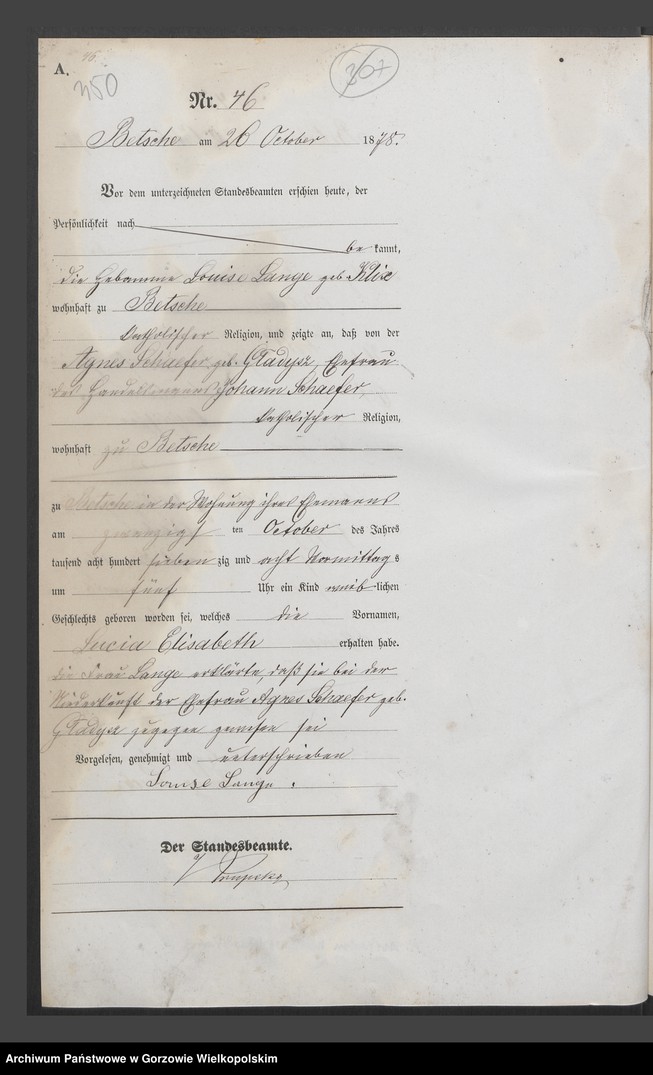 A.
450
367
Nr. 46
Betsche am 26 October 1878.
Vor dem unterzeichneten Standesbeamten erschien heute, der
Persönlichkeit nach
be kannt,
die Hebamme Louise Lange geb. Klix
wohnhaft zu Betsche
katholischer Religion, und zeigte an, daß von der
Agnes Schaefer, geb. Gladysz, Ehefrau
des Handelsmanns Johann Schaefer,
katholischer Religion,
wohnhaft zu Betsche
zu Betsche in der Wohnung ihres Ehemanns
am zwanzigs ten October des Jahres
tausend acht hundert sieben zig und acht Vormittag s
um fünf Uhr ein Kind weib lichen
Geschlechts geboren worden sei, welches die Vornamen,
Lucia Elisabeth erhalten habe.
die Frau Lange erklärte, daß sie bei der
Niederkunft der Ehefrau Agnes Schaefer geb.
Gladysz zugegen gewesen sei
Vorgelesen, genehmigt und unterschrieben
Louise Lange.
Der Standesbeamte.
Archiwum Państwowe w Gorzowie Wielkopolskim